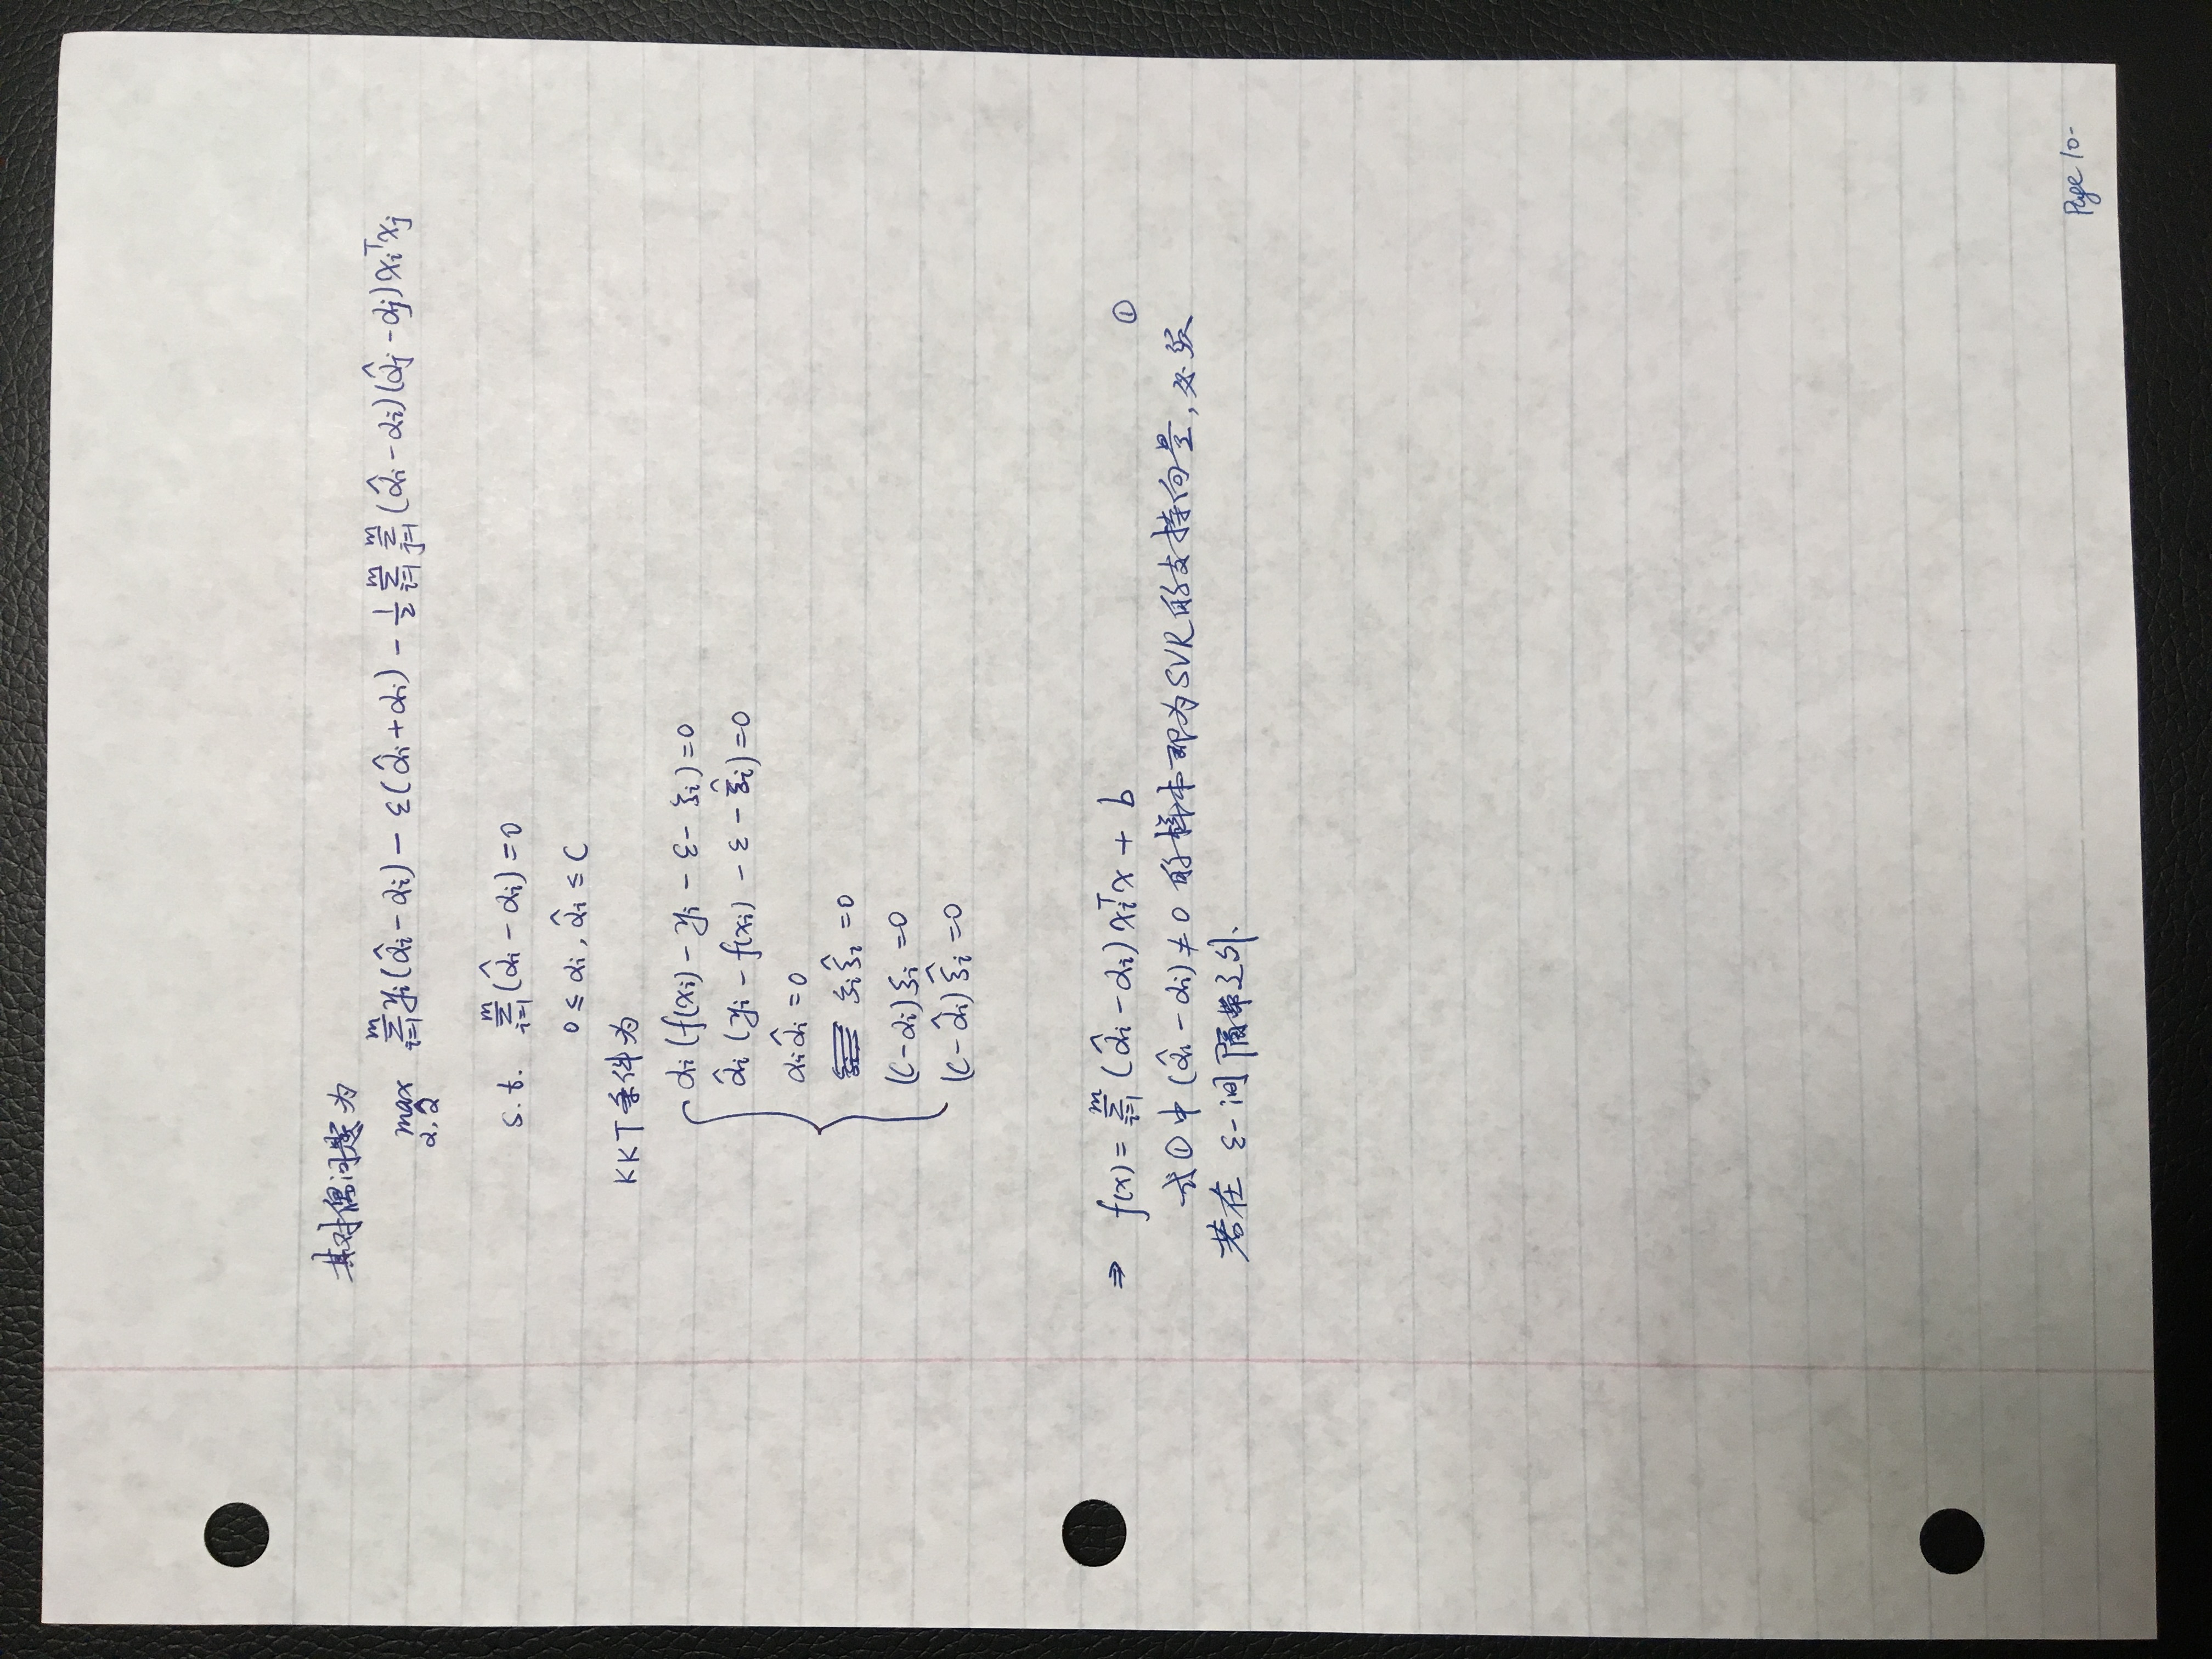 其对偶问题为
max Σ_{i=1}^{m} y_i(α̂_i - α_i) - ε(α̂_i + α_i) - 1/2 Σ_{i=1}^{m} Σ_{j=1}^{m} (α̂_i - α_i)(α̂_j - α_j) x_i^T x_j
α, α̂
s.t. Σ_{i=1}^{m} (α̂_i - α_i) = 0
0 ≤ α_i, α̂_i ≤ C
KKT条件为
α_i (f(x_i) - y_i - ε - ξ_i) = 0
α̂_i (y_i - f(x_i) - ε - ξ̂_i) = 0
α_i α̂_i = 0
ξ_i ξ̂_i = 0
(C - α_i) ξ_i = 0
(C - α̂_i) ξ̂_i = 0
⇒ f(x) = Σ_{i=1}^{m} (α̂_i - α_i) x_i^T x + b ①
式①中 (α̂_i - α_i) ≠ 0 的样本即为SVR的支持向量, 必须
若在 ε-间隔带之外.
Page 10-